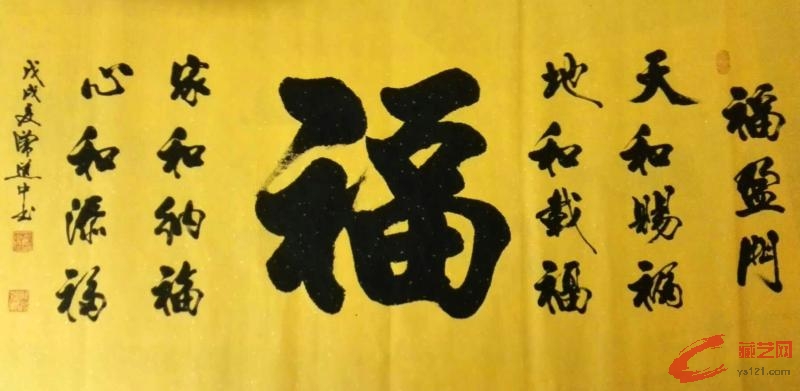 福盈門
天和賜福
地和載福
福
家和納福
心和添福
戊戌夏 進中书
藏艺网
ys121.com